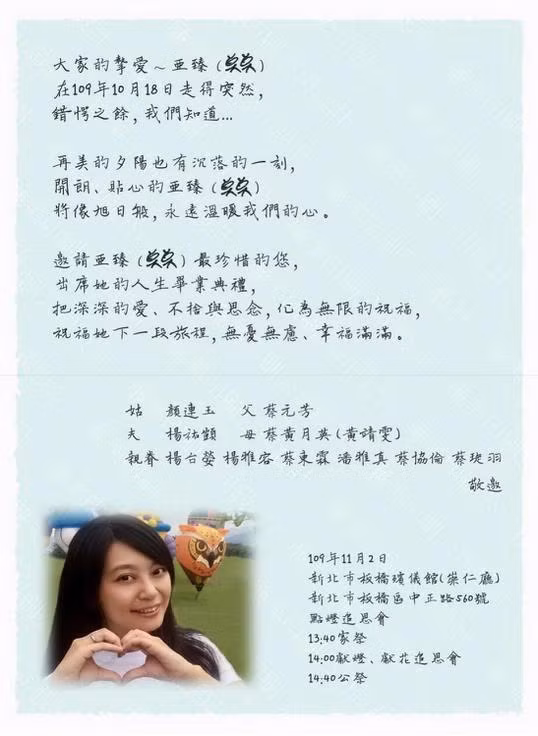 大家的摯愛~亞臻(臭臭)
在109年10月18日走得突然,
錯愕之餘,我們知道...
再美的夕陽也有沉落的一刻,
開朗、貼心的亞臻(臭臭)
將像旭日般,永遠溫暖我們的心。
邀請亞臻(臭臭)最珍惜的您,
出席她的人生畢業典禮,
把深深的愛、不捨與思念,化為無限的祝福,
祝福她下一段旅程,無憂無慮、幸福滿滿。
姑 顏連玉 父 蔡元芳
夫 楊祐顗 母 蔡黃月英(黃靖雯)
親眷 楊台瑩 楊雅容 蔡東霖 潘雅真 蔡協倫 蔡琬羽
敬邀
109年11月2日
新北市板橋殯儀館(崇仁廳)
新北市板橋區中正路560號
點燈追思會
13:40家祭
14:00獻燈、獻花追思會
14:40公祭